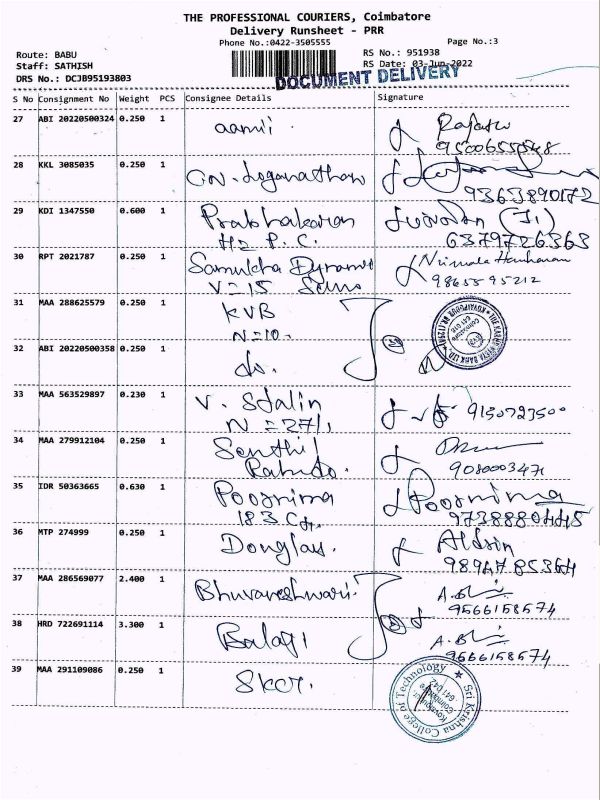 THE PROFESSIONAL COURIERS, Coimbatore
Delivery Runsheet - PRR
Phone No.:0422-3505555
Page No.:3
Route: BABU
RS No.: 951938
Staff: SATHISH
RS Date: 03-Jun-2022
DRS No.: DCJB95193803
DOCUMENT DELIVERY
S No Consignment No Weight PCS Consignee Details Signature
27 ABI 20220500324 0.250 1
28 KKL 3085035 0.250 1 GN. Loganathan
9363890172
29 KDI 1347550 0.600 1 Prabhakaran
H2 P.C.
6379726363
30 RPT 2021787 0.250 1 Nirmala Hariharan
V=15
9865595212
31 MAA 288625579 0.250 1 KVB
N=10.
32 ABI 20220500358 0.250 1 do.
33 MAA 563529897 0.230 1 V. Stalin
N = 27/1 9150723500
34 MAA 279912104 0.250 1 Senthil
9080003471
35 IDR 50363665 0.630 1 Poornima Poornima
183 9738880445
36 MTP 274999 0.250 1 Douglas.
9894785364
37 MAA 286569077 2.400 1 Bhuvaneshwari
9566158574
38 HRD 722691114 3.300 1 Balaji
9566158574
39 MAA 291109086 0.250 1 Skct.
Sri Krishna College of Technology
Kovaipudur,
Coimbatore
641 042